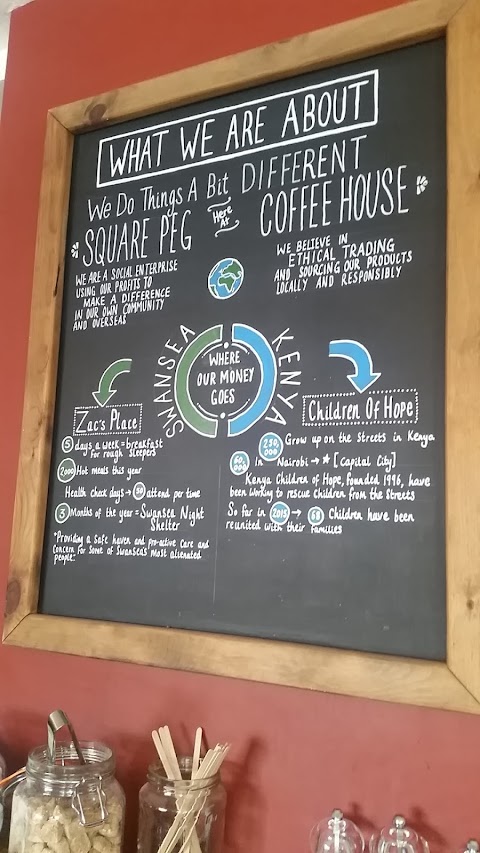 WHAT WE ARE ABOUT
We Do Things A Bit DIFFERENT
Here At
SQUARE PEG
COFFEE HOUSE
WE ARE A SOCIAL ENTERPRISE
USING OUR PROFITS TO
MAKE A DIFFERENCE
IN OUR OWN COMMUNITY
AND OVERSEAS
WE BELIEVE IN
ETHICAL TRADING
AND SOURCING OUR PRODUCTS
LOCALLY AND RESPONSIBLY
SWANSEA
WHERE
OUR MONEY
GOES
KENYA
Zac's Place
5 days a week = breakfast
for rough sleepers
2000 Hot meals this year
Health check days → 50 attend per time
3 Months of the year = Swansea Night
Shelter
"Providing a Safe haven and pro-active care and
concern for some of Swansea's most alienated
people"
Children Of Hope
250,000 Grow up on the Streets in Kenya
60,000 In Nairobi → ★ [Capital City]
Kenya Children of Hope, founded 1996, have
been working to rescue Children from the Streets
So far in 2015 → 68 Children have been
reunited with their families